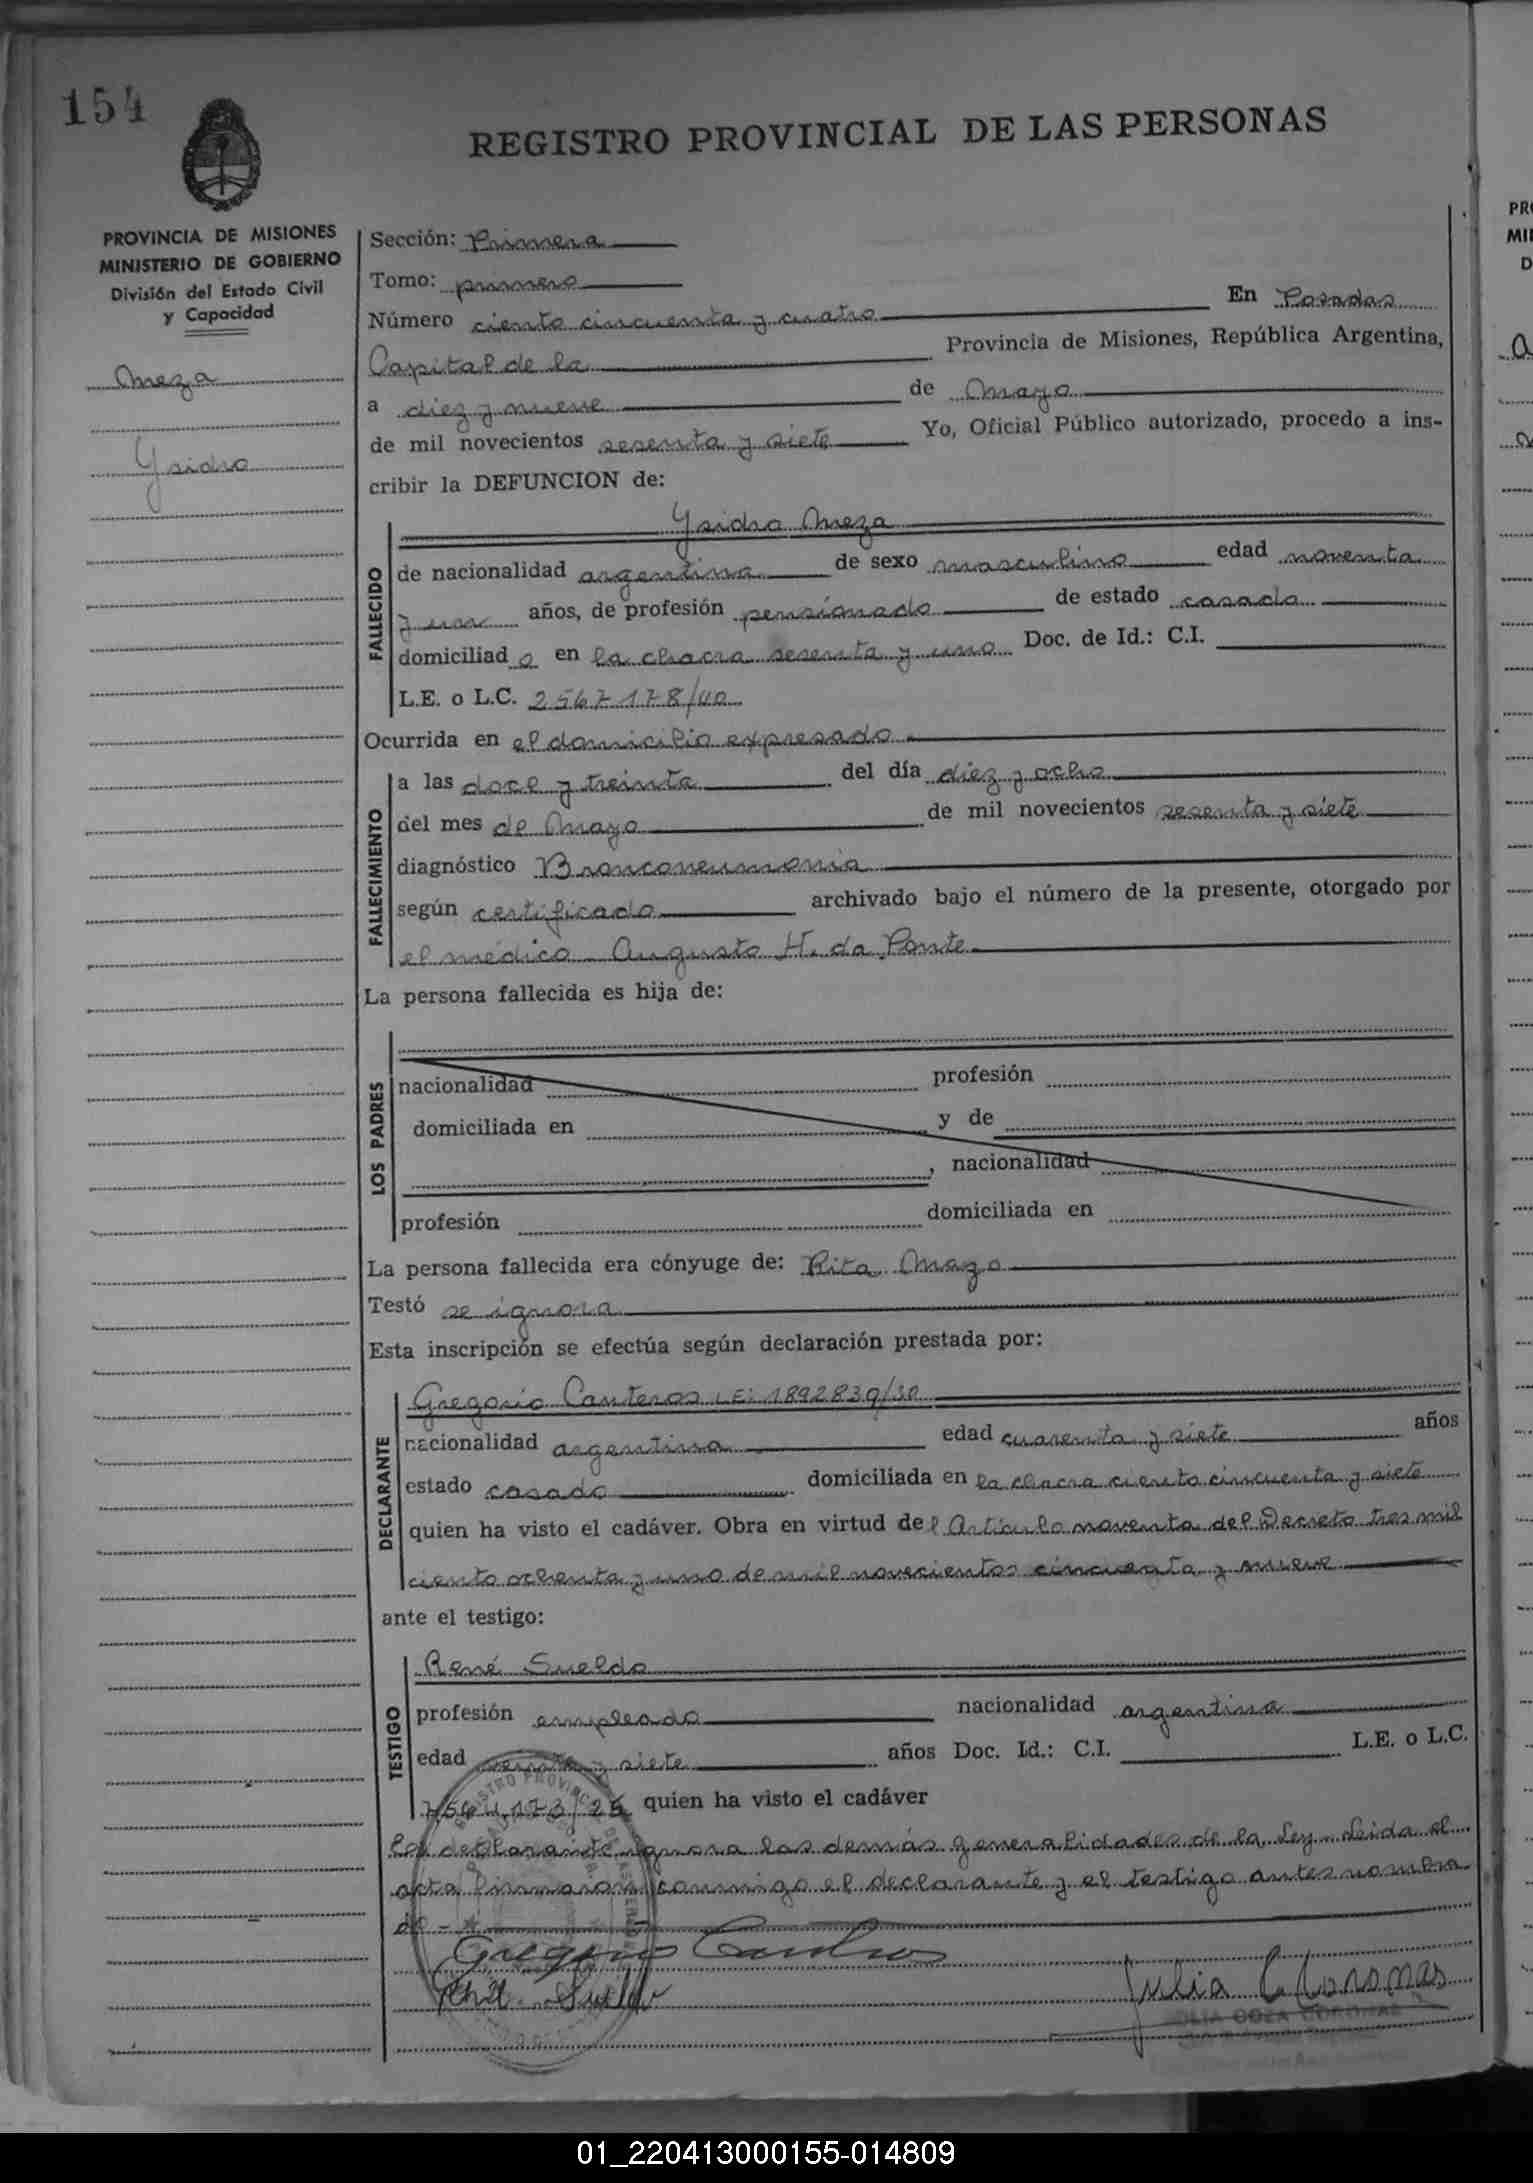 154
REGISTRO PROVINCIAL DE LAS PERSONAS
PROVINCIA DE MISIONES
MINISTERIO DE GOBIERNO
División del Estado Civil
y Capacidad
Meza
Ysidro
Sección: Primera
Tomo: primero
Número ciento cincuenta y cuatro En Posadas
Capital de la Provincia de Misiones, República Argentina,
a diez y nueve de Mayo
de mil novecientos sesenta y siete Yo, Oficial Público autorizado, procedo a ins-
cribir la DEFUNCION de:
Ysidro Meza
FALLECIDO
de nacionalidad argentina de sexo masculino edad noventa
y un años, de profesión pensionado de estado casado
domiciliad o en la chacra sesenta y uno Doc. de Id.: C.I.
L.E. o L.C. 2567178/40
Ocurrida en el domicilio expresado
FALLECIMIENTO
a las doce y treinta del día diez y ocho
del mes de Mayo de mil novecientos sesenta y siete
diagnóstico Bronconeumonia
según certificado archivado bajo el número de la presente, otorgado por
el médico Augusto H. da Ponte
La persona fallecida es hija de:
LOS PADRES
nacionalidad profesión
domiciliada en y de
, nacionalidad
profesión domiciliada en
La persona fallecida era cónyuge de: Rita Mazo
Testó se ignora
Esta inscripción se efectúa según declaración prestada por:
DECLARANTE
Gregorio Canteros LE: 1892839/30
nacionalidad argentina edad cuarenta y siete años
estado casado domiciliada en la chacra ciento cincuenta y siete
quien ha visto el cadáver. Obra en virtud del Artículo noventa del Decreto tres mil
ciento ochenta y uno de mil novecientos cincuenta y nueve
ante el testigo:
TESTIGO
René Sueldo
profesión empleado nacionalidad argentina
edad y siete años Doc. Id.: C.I. L.E. o L.C.
quien ha visto el cadáver
declarante ignora las demás generalidades de la Ley. Leida el
acta firmaron conmigo el declarante y el testigo antes nombra
do -
Gregorio Canteros
Sueldo
Julia C Coronas
JULIA COZA CORONAS
PR
MI
D
01_220413000155-014809